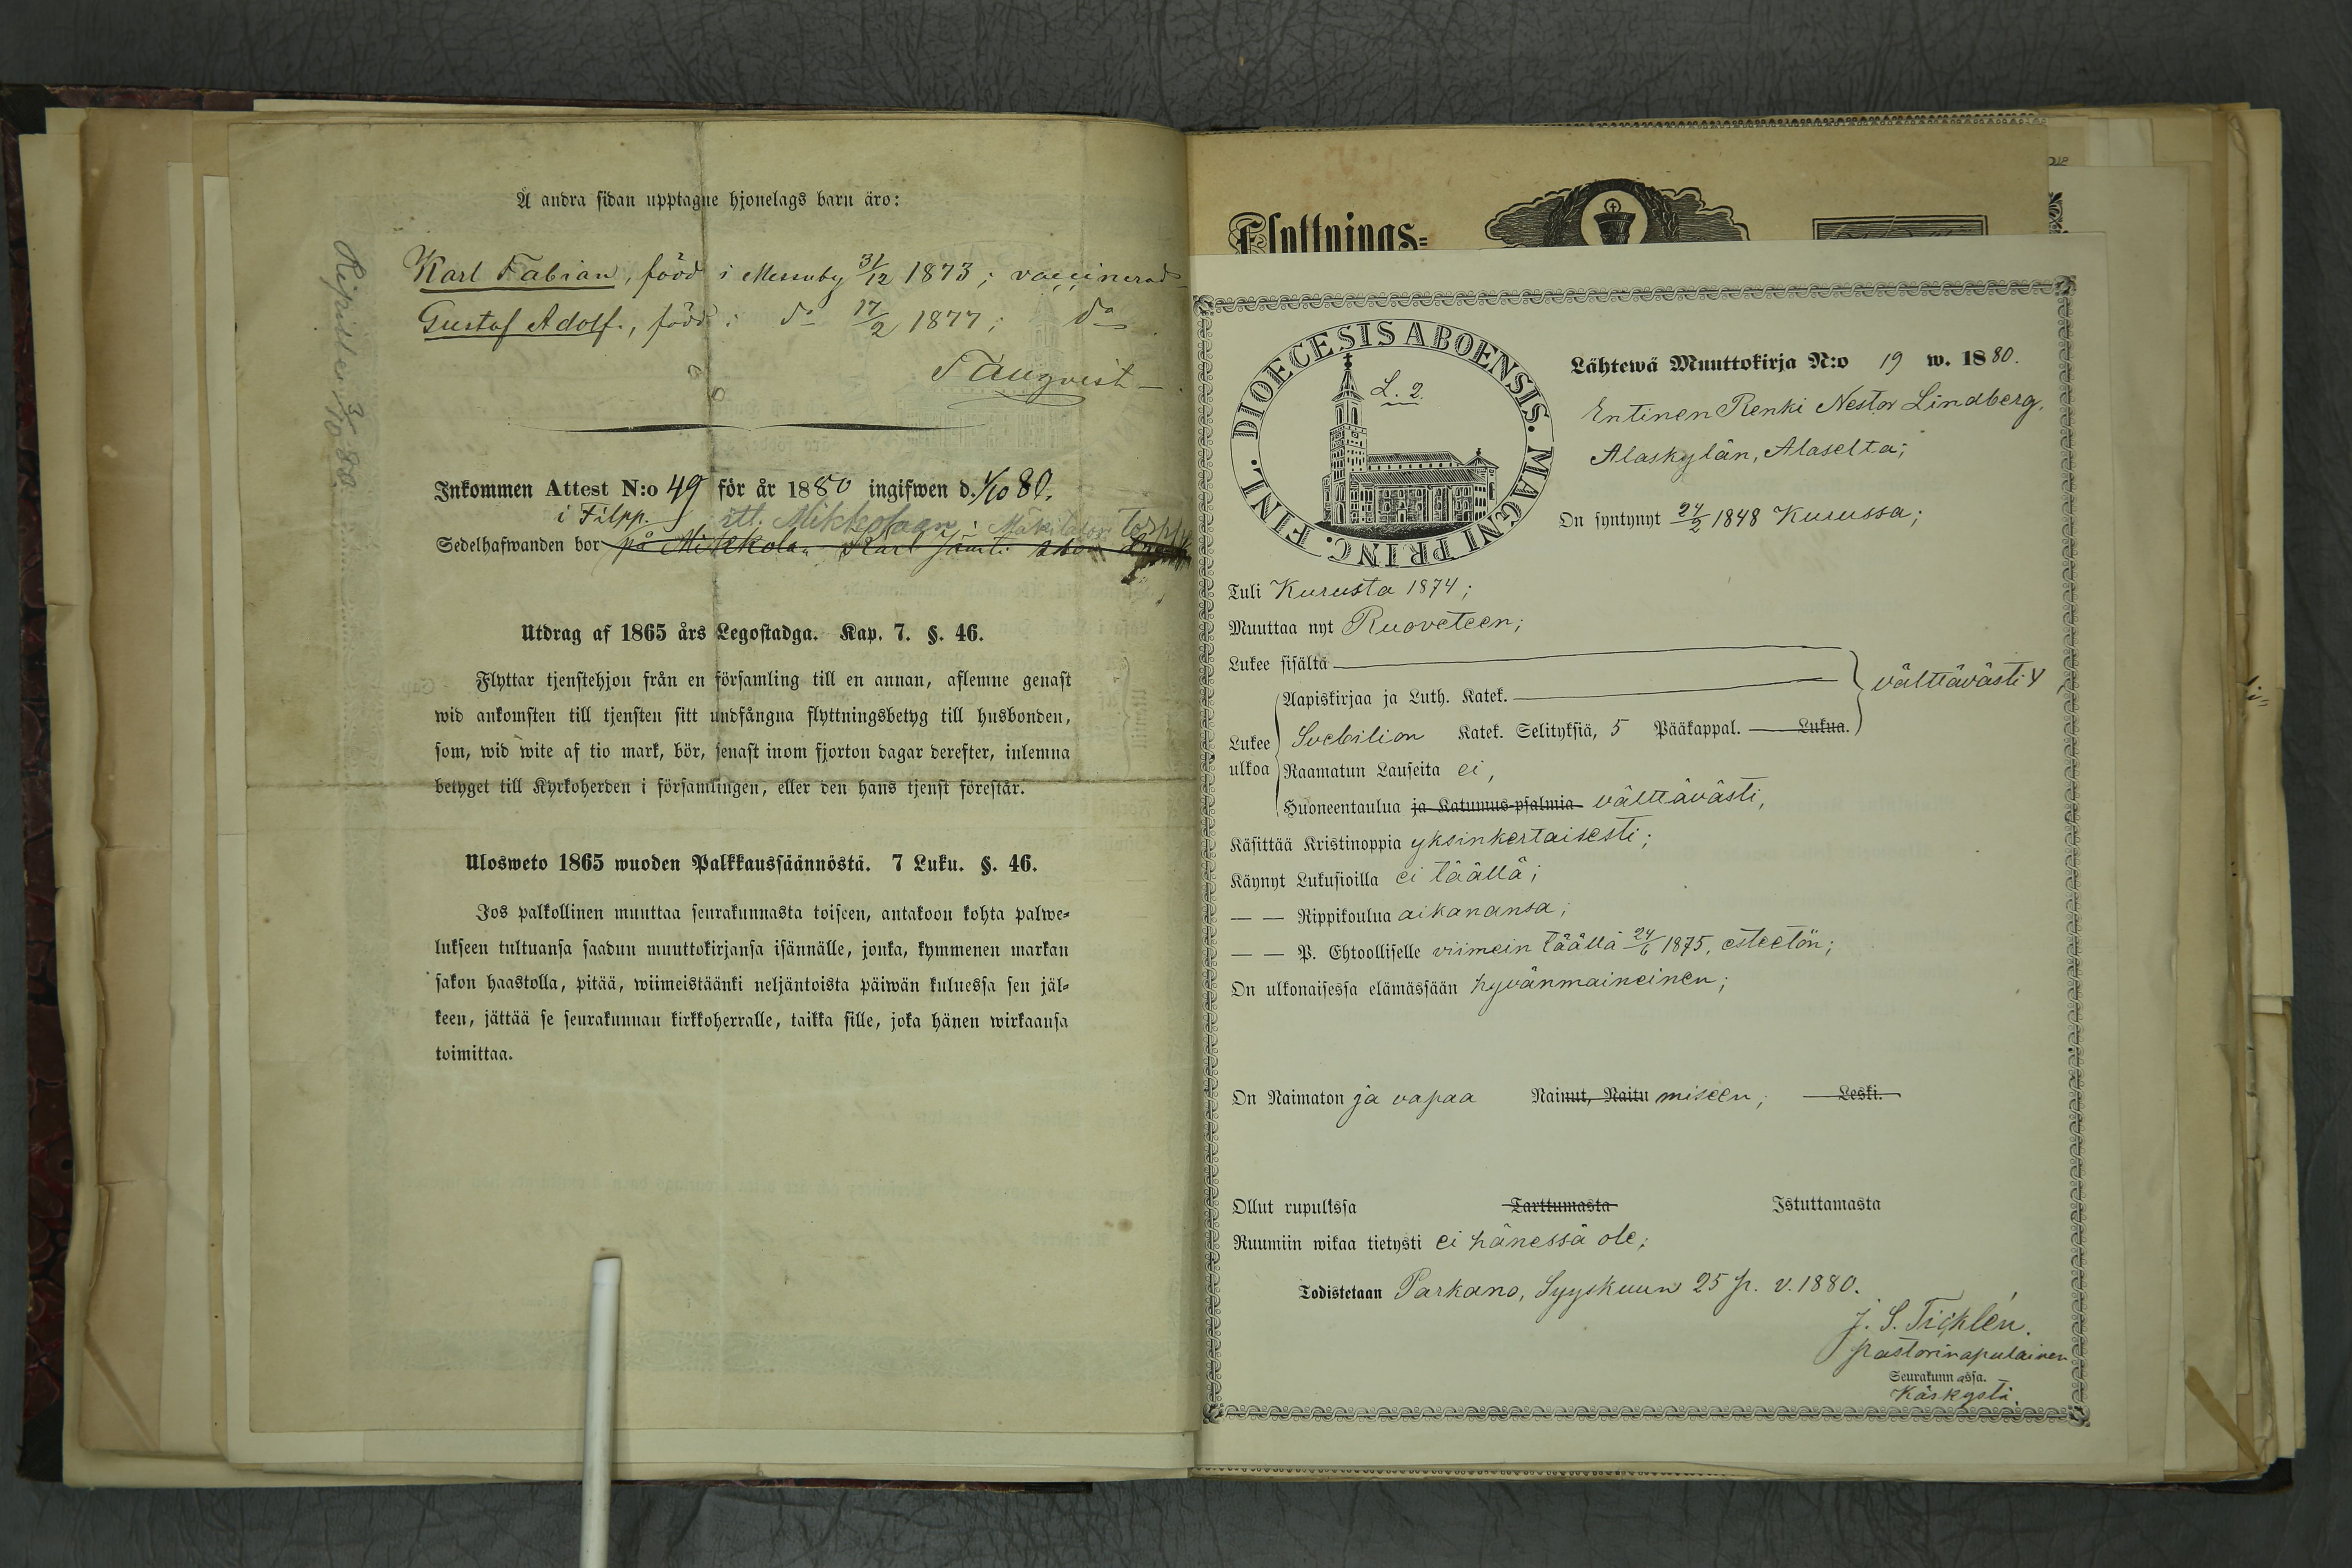 Å andra sidan upptagne hjonelags barn äro:
Karl Fabian, född i Messuby 31/12 1873; vaccinerad
Gustaf Adolf, född i do 17/2 1877; do
Tauqvist
Registler. 3/10 80.
Inkommen Attest N:o 49 för år 1880 ingifwen d. 1/10 80.
i Filpp. itt. Mikkolaan Mäkilatori torpp
Sedelhafwanden bor på Mikkola Karl
Utdrag af 1865 års Legostadga. Kap. 7. §. 46.
Flyttar tjenstehjon från en församling till en annan, aflemne genast
wid ankomsten till tjensten sitt undfångna flyttningsbetyg till husbonden,
som, wid wite af tio mark, bör, senast inom fjorton dagar derefter, inlemna
betyget till Kyrkoherden i församlingen, eller den hans tjenst förestår.
Ulosweto 1865 wuoden Palkkaussäännöstä. 7 Luku. §. 46.
Jos palkollinen muuttaa seurakunnasta toiseen, antakoon kohta palwe-
lukseen tultuansa saadun muuttokirjansa isännälle, jonka, kymmenen markan
sakon haastolla, pitää, wiimeistäänki neljäntoista päiwän kuluessa sen jäl-
keen, jättää se seurakunnan kirkkoherralle, taikka sille, joka hänen wirkaansa
toimittaa.
Flyttnings-
DIOECESIS ABOENSIS. MAGNI PRINC. FINL.
L. 2.
Lähtewä Muuttokirja N:o 19 w. 1880.
Entinen Renki Nestor Lindberg,
Alaskylän, Alaselta;
On syntynyt 24/2 1848 Kurussa;
Tuli Kurusta 1874;
Muuttaa nyt Ruoveteen;
Lukee sisältä
Aapiskirjaa ja Luth. Katek. välttävästi
Lukee ulkoa Svebilion Katek. Selityksiä, 5 Pääkappal. Lukua.
Raamatun Lauseita ei,
Huoneentaulua ja Katumus-psalmia välttävästi,
Käsittää Kristinoppia yksinkertaisesti;
Käynyt Lukusioilla ei täällä;
— — Rippikoulua aikanansa;
— — P. Ehtoolliselle viimein täällä 24/6 1875, esteetön;
On ulkonaisessa elämässään hyvänmaineinen;
On Naimaton ja vapaa Nainut, Naitu miseen; Leski.
Ollut rupulissa Tarttumasta Istuttamasta
Ruumiin wikaa tietysti ei hänessä ole;
Todistetaan Parkano, Syyskuun 25 p. v. 1880.
J. S. Ticklén.
pastorinapulainen
Seurakunnassa.
Käskystä.